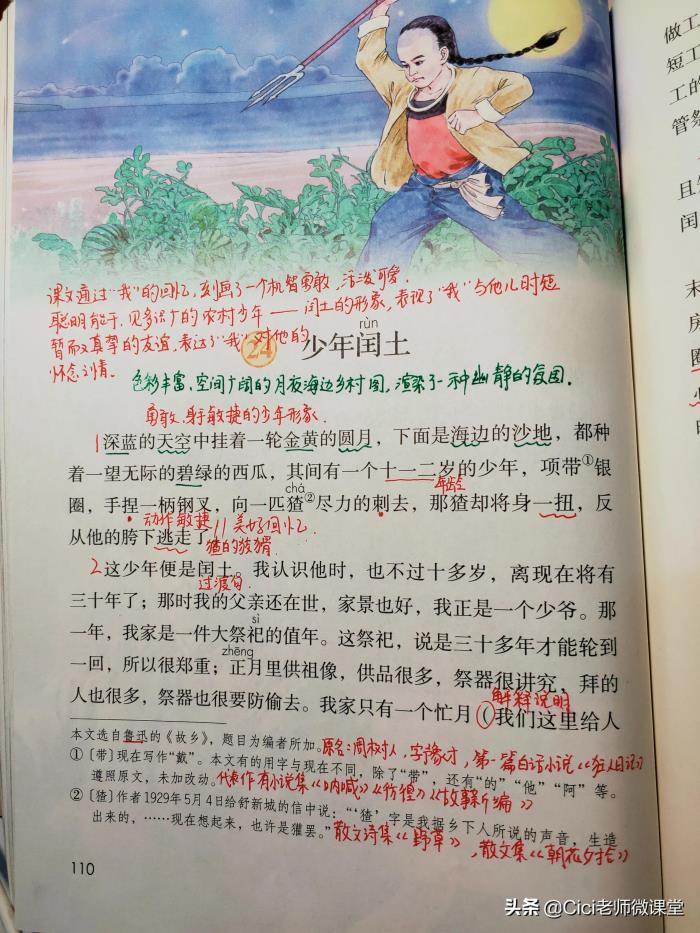 课文通过“我”的回忆,刻画了一个机智勇敢,活泼可爱,
聪明能干,见多识广的农村少年——闰土的形象,表现了“我”与他儿时短
暂而又真挚的友谊,表达了“我”对他的
怀念之情。
rùn
24 少年闰土
色彩丰富、空间广阔的月夜海边乡村图,渲染了一种幽静的氛围。
勇敢、身手敏捷的少年形象.
1深蓝的天空中挂着一轮金黄的圆月,下面是海边的沙地,都种
着一望无际的碧绿的西瓜,其间有一个十一二岁的少年,项带①银
年龄
chá
圈,手捏一柄钢叉,向一匹猹②尽力的刺去,那猹却将身一扭,反
动作敏捷 // 美好回忆.
从他的胯下逃走了
猹的狡猾
2这少年便是闰土。我认识他时,也不过十多岁,离现在将有
过渡句
三十年了;那时我的父亲还在世,家景也好,我正是一个少爷。那
sì
一年,我家是一件大祭祀的值年。这祭祀,说是三十多年才能轮到
zhēng
一回,所以很郑重;正月里供祖像,供品很多,祭器很讲究,拜的
解释说明
人也很多,祭器也很要防偷去。我家只有一个忙月(我们这里给人
本文选自鲁迅的《故乡》,题目为编者所加。原名:周树人,字豫才,第一篇白话小说《狂人日记》
①〔带〕现在写作“戴”。本文有的用字与现在不同,除了“带”,还有“的”“他”“阿”等。
遵照原文,未加改动。代表作有小说集《呐喊》《彷徨》《故事新编》
②〔猹〕作者1929年5月4日给舒新城的信中说:“‘猹’字是我据乡下人所说的声音,生造
出来的,……现在想起来,也许是獾罢。”散文诗集《野草》,散文集《朝花夕拾》
110
做工
短工
工的
管祭
闰
未
房
圈
头条 @Cici老师微课堂